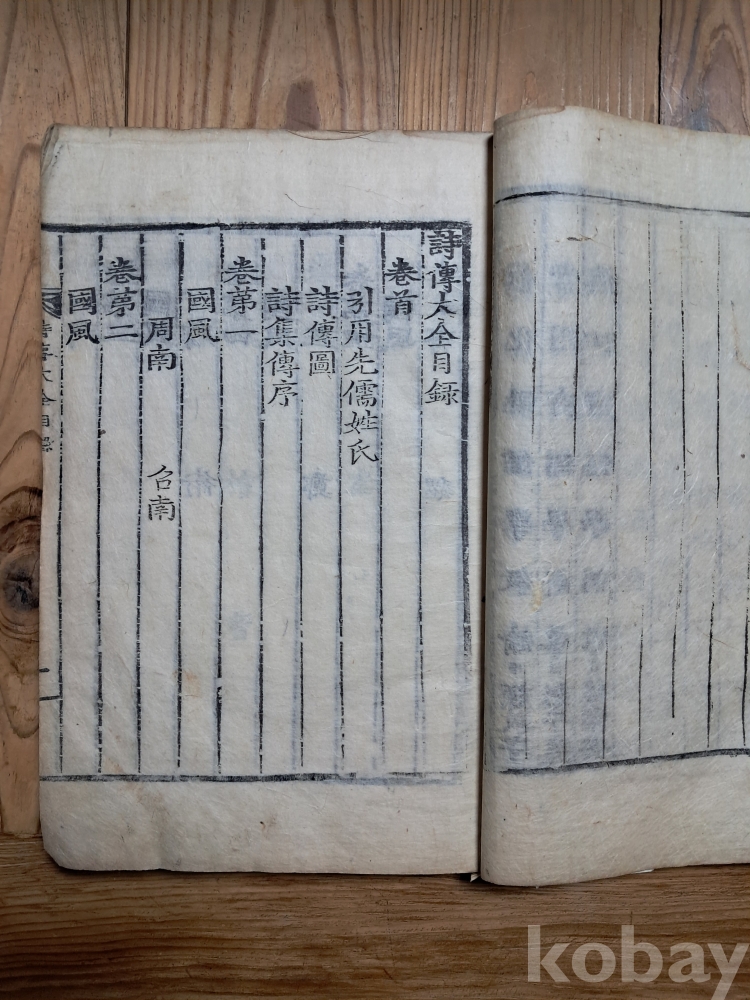 詩傳大全目録
卷首
引用先儒姓氏
詩傳圖
詩集傳序
卷第一
國風
周南 召南
卷第二
國風
kobay